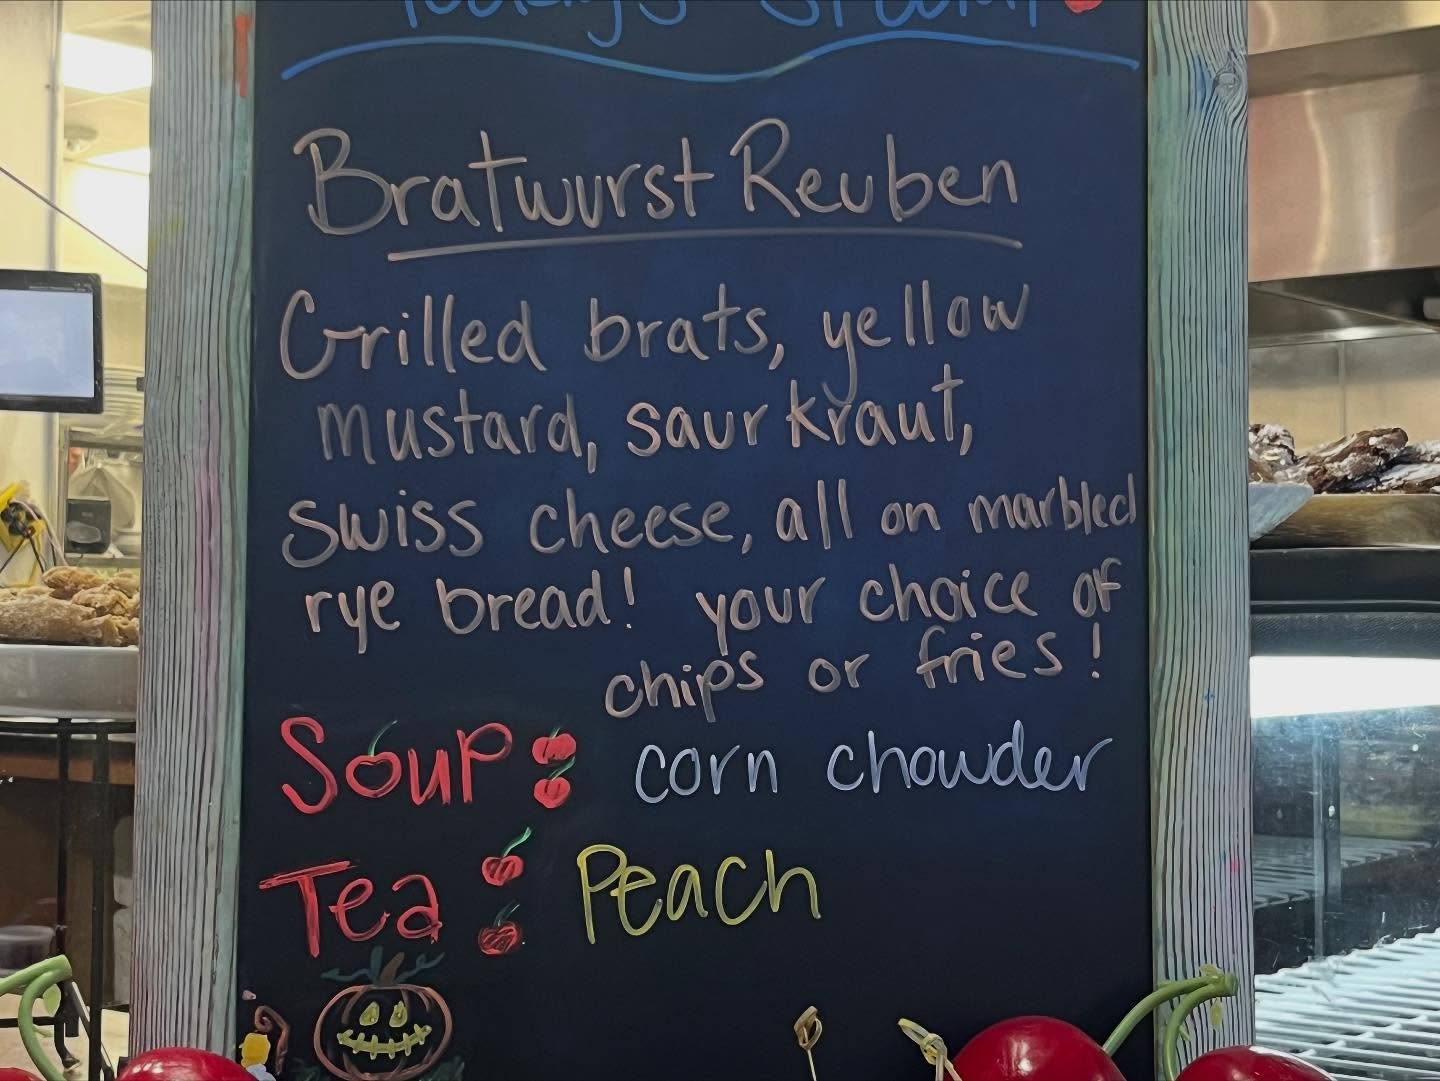 Today's Special
Bratwurst Reuben
Grilled brats, yellow
mustard, saurkraut,
swiss cheese, all on marbled
rye bread! your choice of
chips or fries!
Soup: corn chowder
Tea: Peach